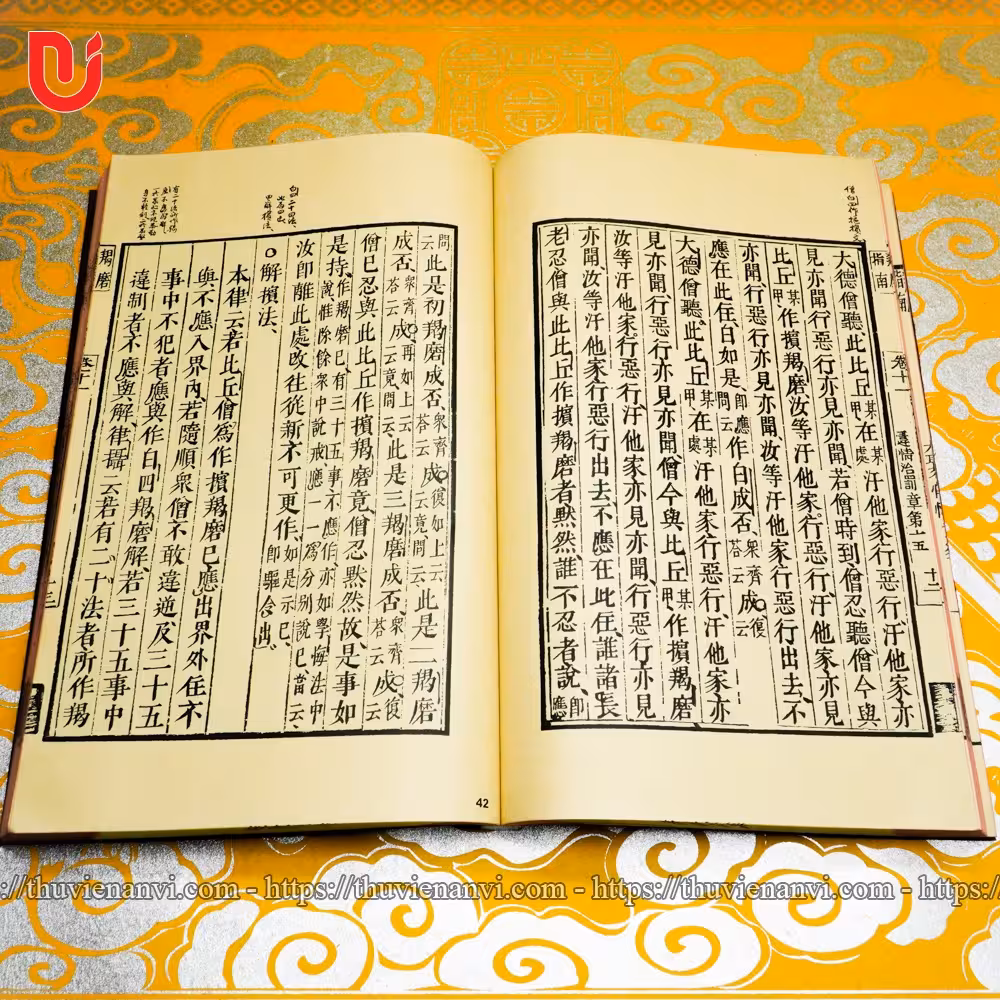 大德僧聽此比丘某甲在某處汙他家行惡行汙他家亦
見亦聞行惡行亦見亦聞若僧時到僧忍聽僧今與
比丘某甲作擯羯磨汝等汙他家行惡行汙他家亦見
亦聞行惡行亦見亦聞汝等汙他家行惡行出去不
應在此住白如是即應問云作白成否衆齊荅云成復云
大德僧聽此比丘某甲在某處汙他家行惡行汙他家亦
見亦聞行惡行亦見亦聞僧今與此比丘某甲作擯羯磨
汝等汙他家行惡行汙他家亦見亦聞行惡行亦見
亦聞汝等汙他家行惡行出去不應在此住誰諸長
老忍僧與此比丘作擯羯磨者默然誰不忍者說即應
指南
卷十
違情治罰章第十五
十二
問云此是初羯磨成否衆齊荅云成復如上云竟問云此是二羯磨
成否荅云成再如上云荅云竟問云此是三羯磨成否衆齊荅云成復云
僧已忍與此比丘作擯羯磨竟僧忍默然故是事如
是持作羯磨已有三十五事不應作亦如學悔法中
說惟除餘衆中說戒應一一爲分别說已當云
汝即離此處改往從新不可更作如是示已即驅令出
○解擯法
本律云若比丘僧爲作擯羯磨已應出界外住不
與不應入界內若隨順衆僧不敢違逆及三十五
事中不犯者應與作白四羯磨解若三十五事中
違制者不應與解律攝云若有二十法者所作羯
羯磨
卷十一
十三
42
https://thuvienanvi.com - https://thuvienanvi.com - https://thuvienanvi.com